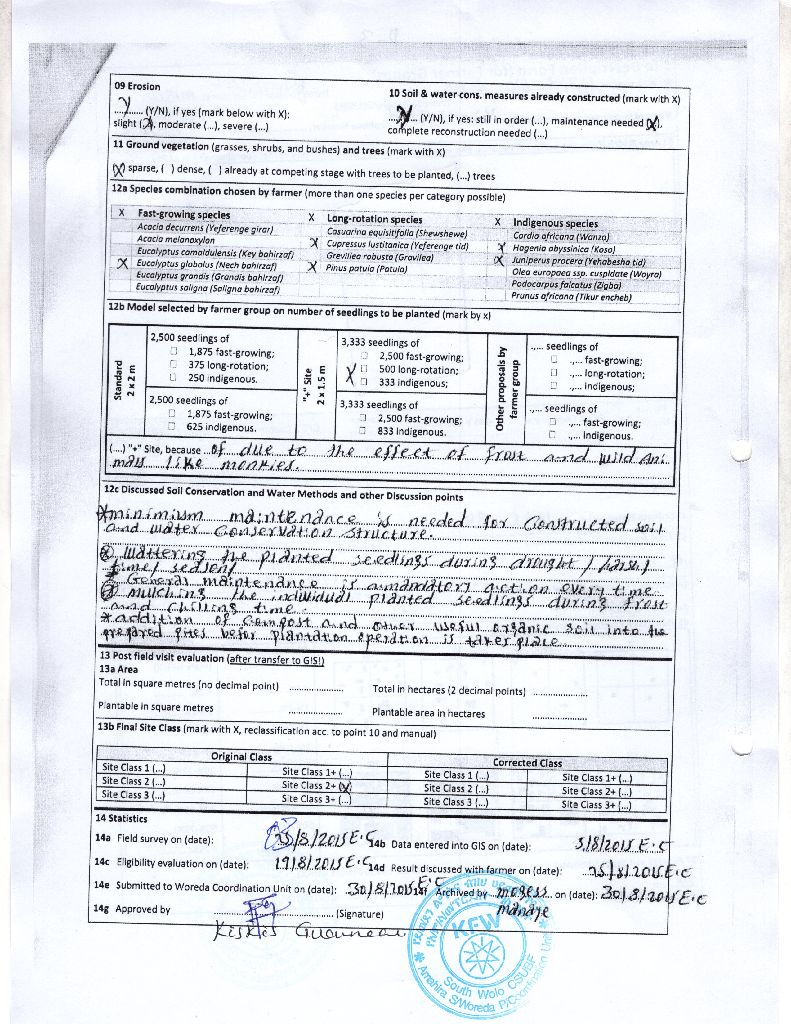 09 Erosion
10 Soil & water cons. measures already constructed (mark with X)
Y (Y/N), if yes (mark below with X):
slight (X), moderate (...), severe (...)
Y (Y/N), if yes: still in order (...), maintenance needed (X),
complete reconstruction needed (...)
11 Ground vegetation (grasses, shrubs, and bushes) and trees (mark with X)
(X) sparse, ( ) dense, ( ) already at competing stage with trees to be planted, (...) trees
12a Species combination chosen by farmer (more than one species per category possible)
X Fast-growing species
Acacia decurrens (Yeferenge girar)
Acacia melanoxylon
Eucalyptus camaldulensis (Key bahirzaf)
X Eucalyptus globolus (Nech bahirzaf)
Eucalyptus grandis (Grandis bahirzaf)
Eucalyptus saligna (Saligna bahirzaf)
X Long-rotation species
Casuarina equisitifolia (Shewshewe)
X Cupressus lustitanica (Yeferenge tid)
Greviliea robusta (Gravilea)
X Pinus patula (Patula)
X Indigenous species
Cordia africana (Wanza)
X Hagenia abyssinica (Koso)
X Juniperus procera (Yehabesha tid)
Olea europaea ssp. cuspidate (Wayra)
Podocarpus falcatus (Zigba)
Prunus africana (Tikur encheb)
12b Model selected by farmer group on number of seedlings to be planted (mark by x)
Standard
2 x 2 m
2,500 seedlings of
☐ 1,875 fast-growing;
☐ 375 long-rotation;
☐ 250 indigenous.
2,500 seedlings of
☐ 1,875 fast-growing;
☐ 625 indigenous.
"+" Site
2 x 1.5 m
3,333 seedlings of
☐ 2,500 fast-growing;
X ☐ 500 long-rotation;
☐ 333 indigenous;
3,333 seedlings of
☐ 2,500 fast-growing;
☐ 833 indigenous.
Other proposals by
farmer group
.,... seedlings of
☐ .,... fast-growing;
☐ .,... long-rotation;
☐ .,... indigenous;
.,... seedlings of
☐ .,... fast-growing;
☐ .,... indigenous.
(...) "+" Site, because of due to the effect of frost and wild ani
mals like monkies.
12c Discussed Soil Conservation and Water Methods and other Discussion points
minimium maintenance is needed for Constructed soil
and water Conservation structure.
Wattering the planted seedlings during drought /
time/ season/
General maintenance is a mandatory action every time
mulching the individual planted seedlings during frost
and chilling time.
addition of Compost and other useful organic soil into the
prepared pites befor plantation operation is takes place.
13 Post field visit evaluation (after transfer to GIS!)
13a Area
Total in square metres (no decimal point) ...............
Total in hectares (2 decimal points) ...............
Plantable in square metres ...............
Plantable area in hectares ...............
13b Final Site Class (mark with X, reclassification acc. to point 10 and manual)
Original Class
Corrected Class
Site Class 1 (...) Site Class 1+ (...) Site Class 1 (...) Site Class 1+ (...)
Site Class 2 (...) Site Class 2+ (X) Site Class 2 (...) Site Class 2+ (...)
Site Class 3 (...) Site Class 3+ (...) Site Class 3 (...) Site Class 3+ (...)
14 Statistics
14a Field survey on (date): /8/2015 E.C
14b Data entered into GIS on (date): 5/8/2015 E.C
14c Eligibility evaluation on (date): 19/8/2015 E.C
14d Result discussed with farmer on (date): 25/8/2015 E.C
14e Submitted to Woreda Coordination Unit on (date): 30/8/2015 E.C
14f Archived by mogess mandje on (date): 30/8/2015 E.C
14g Approved by ............... (Signature)
KFW
South Wolo CSUSF